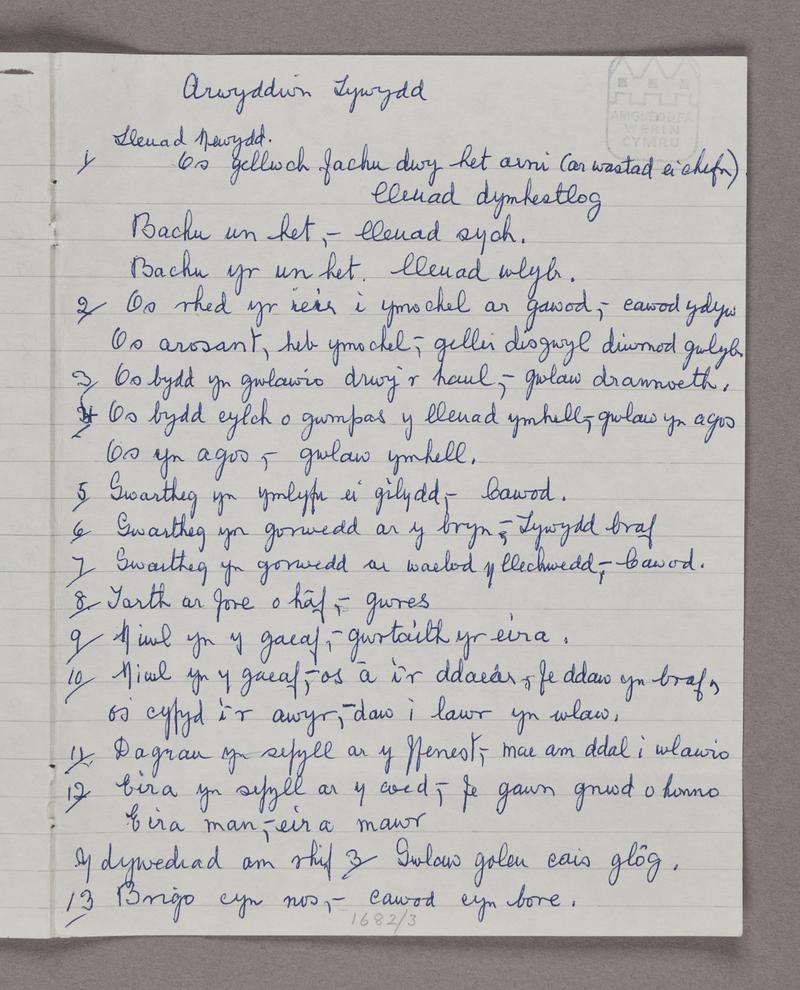 Arwyddion Tywydd
AMGUEDDFA
WERIN
CYMRU
Lleuad Newydd.
1/ Os gellwch fachu dwy het arni (ar wastad ei chefn)
lleuad dymhestlog
Bachu un het,- lleuad sych.
Bachu yr un het. lleuad wlyb.
2/ Os rhed yr ieir i ymochel ar gawod,- cawod ydyw
Os arosant, heb ymochel,- gellir disgwyl diwrnod gwlyb
3/ Os bydd yn gwlawio drwy'r haul,- gwlaw drannoeth.
4/ Os bydd cylch o gwmpas y lleuad ymhell,- gwlaw yn agos
Os yn agos,- gwlaw ymhell.
5/ Gwartheg yn ymlyfu ei gilydd,- Cawod.
6/ Gwartheg yn gorwedd ar y bryn,- Tywydd braf
7/ Gwartheg yn gorwedd ar waelod y llechwedd,- Cawod.
8/ Tarth ar fore o hâf,- gwres
9/ Niwl yn y gaeaf,- gwrtaith yr eira.
10/ Niwl yn y gaeaf,- os â i'r ddaear, fe ddaw yn braf,
os cyfyd i'r awyr,- daw i lawr yn wlaw.
11/ Dagrau yn sefyll ar y ffenest,- mae am ddal i wlawio
12/ Eira yn sefyll ar y coed,- fe gawn gnwd o honno
Eira man,- eira mawr
Y dywediad am rhif 3/ Gwlaw goleu cais glôg.
13/ Brigo cyn nos,- cawod cyn bore.
1682/3